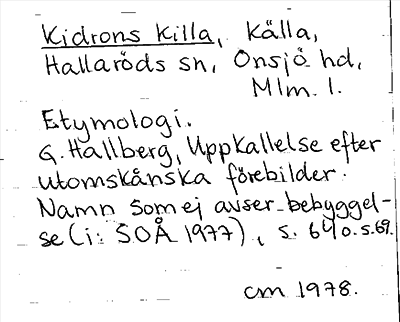 Kidrons Killa, Källa,
Hallaröds sn, Onsjö hd,
Mlm. l.
Etymologi.
G. Hallberg, Uppkallelse efter
utomskånska förebilder.
Namn som ej avser bebyggel-
se (i: SOÅ 1977), s. 64 o. s. 69.
cm 1978.